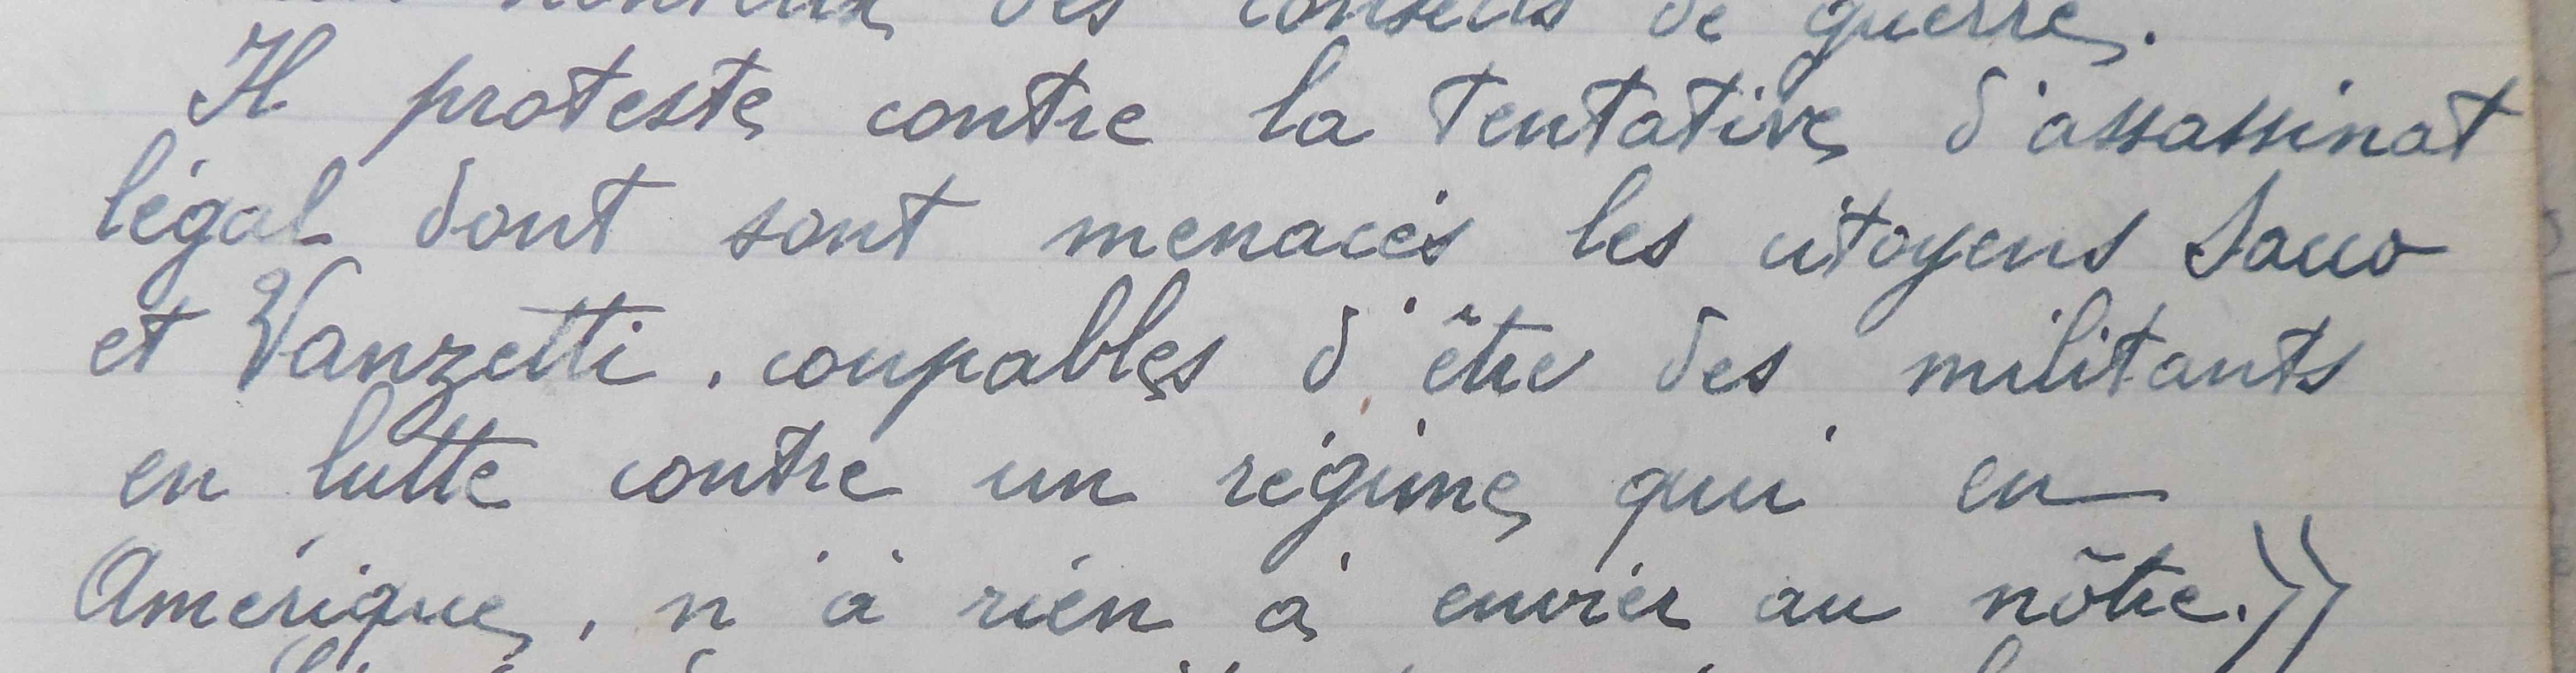 des conseils de guerre.
Il proteste contre la tentative d'assassinat
légal dont sont menacés les citoyens Sacco
et Vanzetti, coupables d'être des militants
en lutte contre un régime qui en
Amérique, n'a rien à envier au nôtre.»